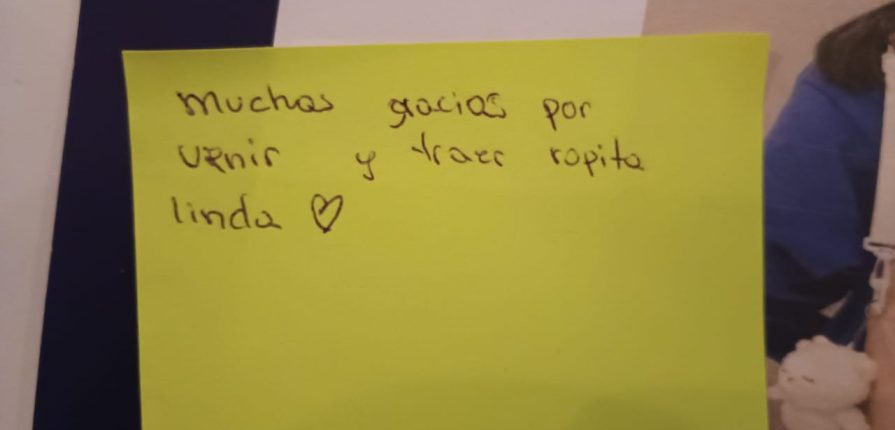 muchas gracias por
venir y traer ropita
linda ♡